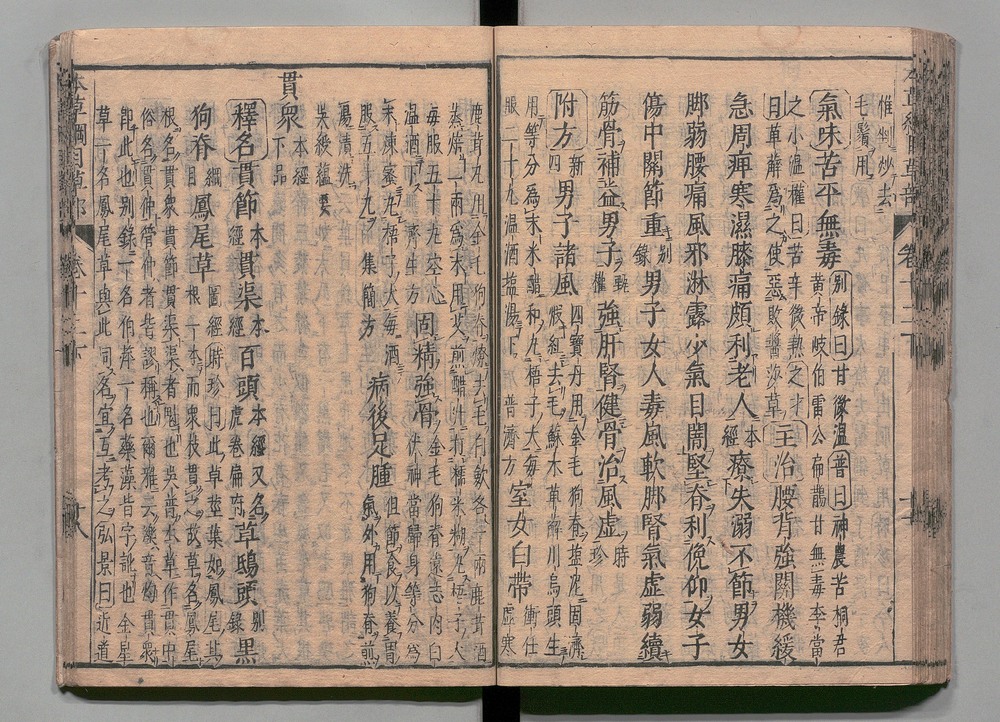 惟剉炒去
毛鬚用
氣味苦平無毒別錄曰甘微溫普曰神農苦桐君
黃帝岐伯雷公扁鵲甘無毒李當
之小溫權曰苦辛微熱之才
曰萆薢為之使惡敗醬莎草主治腰背強關機緩
急周痺寒濕膝痛頗利老人本經療失溺不節男女
脚弱腰痛風邪淋露少氣目闇堅脊利俛仰女子
傷中關節重別錄男子女人毒風軟脚腎氣虛弱續
筋骨補益男子甄權強肝腎健骨治風虛時珍
附方新四男子諸風四寶丹用金毛狗脊鹽泥固濟
煅紅去毛蘇木萆薢川烏頭生
用等分為末米醋和丸梧子大每
服二十丸溫酒鹽湯下普濟方室女白帶衝任虛寒
鹿茸丸用金毛狗脊燎去毛白斂各一兩鹿茸酒
蒸焙二兩為末用艾煎醋汁打糯米糊丸梧子大
每服五十丸空心
溫酒下濟生方固精強骨金毛狗脊遠志肉白
茯神當歸身等分為
末煉蜜丸梧子大每酒
服五十丸集簡方病後足腫但節食以養胃
氣外用狗脊煎
湯漬洗
吳綬蘊要
貫衆本經下品
釋名貫節本經貫渠本經百頭本經又名虎卷扁苻草鴟頭別錄黑
狗脊綱目鳳尾草圖經時珍曰此草莖葉如鳳尾其
根一本而衆枝貫之故草名鳳尾
根名貫衆貫節貫渠渠者魁也吳普本草作貫中
俗名貫仲管仲者皆謬稱也爾雅云濼音灼貫衆
即此也別錄一名伯萍一名藥藻皆字訛也金星
草一名鳳尾草與此同名宜互考之弘景曰近道
本草綱目草部
卷十二